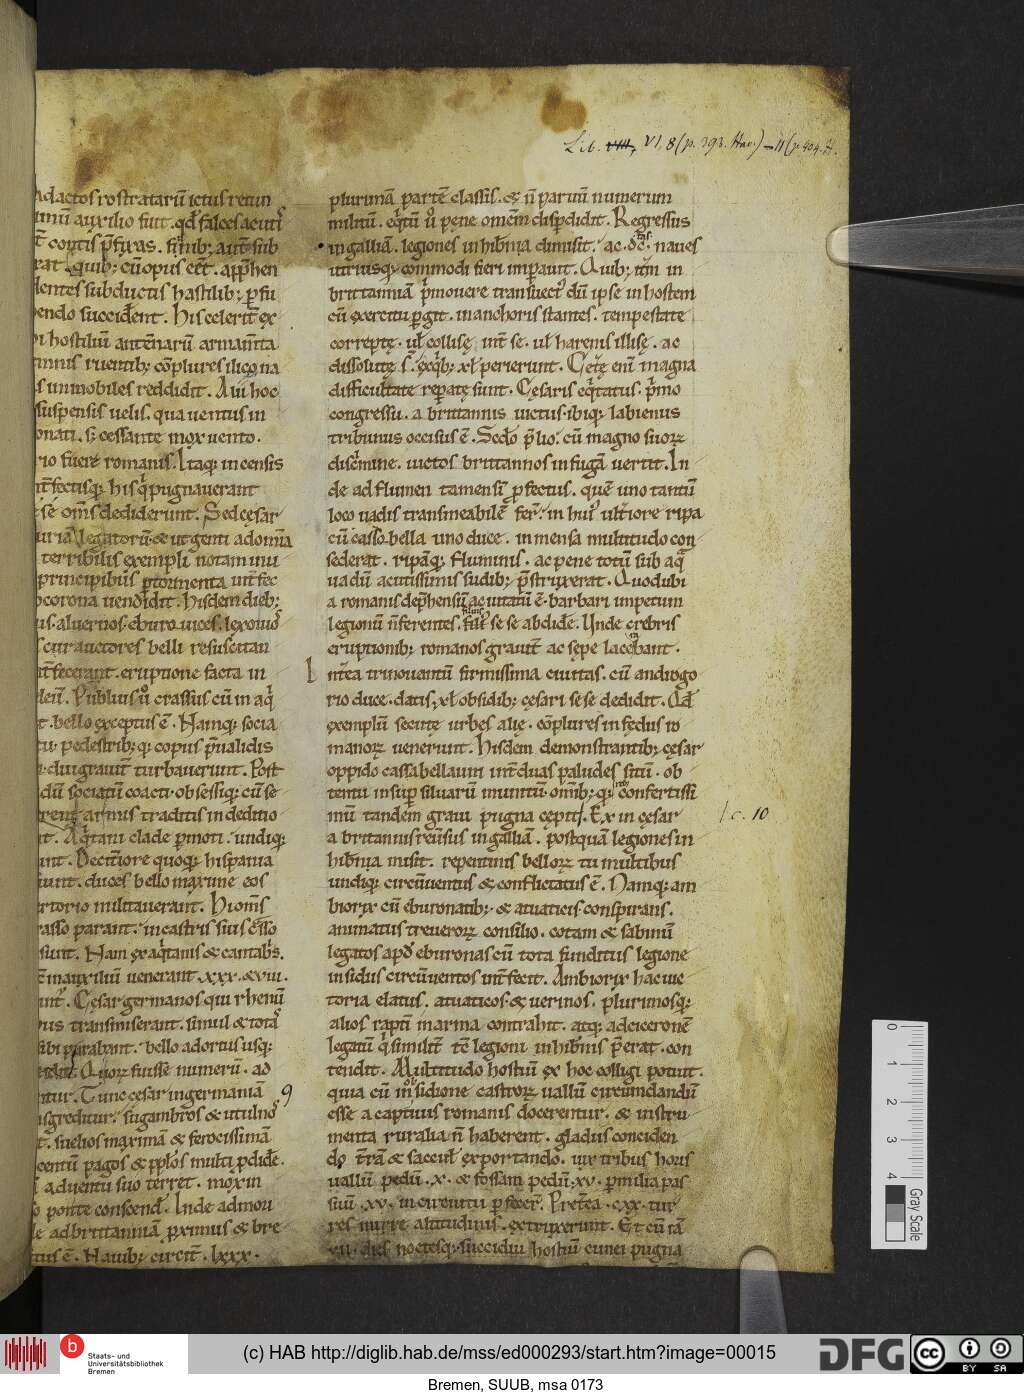 Lib. VIII, VI, 8 (p. 393. Hav.) – 11 (p. 404. H.
adactos rostratarū ictus retun
auxilio fuit. qd falces acuti
cōtis p̄fixas. funib; aut̄ sub
quib; cū opus eēt. app̄hen
dentes subductis hastilib; p̱fu
endo succiderent. His celerit̄ ex
hostiliū antennarū armam̄ta
ruentib; cōplures ilico na
immobiles reddidit. Alii hoc
suspensis uelis. qua uentus in
onati. s; cessante mox uento.
rio fuere romanis. Itaq; incensis
int̄fectisq; his q̇ pugnauerant
se om̄s dediderunt. Sed cesar
legatorū ut genti ad om̄ia
terribilis exempli notam inu
principibus p̱ tormenta int̄fec
corona uendidit. hisdem dieb;
aluernos. eburouices. lexouios
s curauctores belli resuscitan
int̄fecerant. eruptione facta in
Publius ū crassus cū in aq̇
bello exceptus ē. Namq; socia
pedestrib; q; copus p̄ualidis
diu grauit̄ turbauerunt. Post
dū sociatū coacti. obsessiq; cū se
armis traditis in deditio
Aq̇tani clade p̱moti. undiq;
Deciteriore quoq; hispania
duces bello maxime eos
ertorio militauerant. Hi om̄s
rasso parant. in castris suis c̄sso
sunt. Nam ex aq̇tanis & cantab̄s.
in auxiliū uenerant. xxx. & viii.
Cesar germanos qui rhenū
transmiserant. simul & totā
sibi parabant. bello adortus usq;
Quoꝝ fuisse numerū. ad
Tunc cesar in germaniā 9
greditur. sugambros & utulno
suebos maximā & ferocissimā
centū pagos & pp̱los multi p̱ dide.
aduentu suo terret. mox in
ponte conscend. Inde ad mori
ad brittanniā p̱ximus & bre
ē. Nauib; circit̄. lxxx.
plurimā partē classis. & n̄ paruū numerum
militū. eq̇tū ū pene omēm disp̱didit. Regressus
in galliā. legiones in hib̄nia dimisit. ac. dc. naues
utriusq; commodi fieri imp̱auit. Quib; it̄m in
brittanniā p̄mouere transuect dū ipse in hostem
cū exercitu p̱git. in anchoris stantes. tempestate
correptę. ul̄ collisę int̄ se. ul̄ harenis illisę. ac
dissolutę s̄. ex q̇b; xl p̱erierunt. Cetę enī magna
difficultate rep̱atę sunt. Cęsaris eq̇tatus. p̄mo
congressu. a brittannis uictus. ibiq; labienus
tribunus occisus ē. Sedo p̄lio. cū magno suoꝝ
disc̄mine. uictos brittannos in fugā uertit. In
de ad flumen tamensī p̱fectus. quē uno tantū
loco uadis transmeabilē fer̄. in hui ult̄iore ripa
cū casso bella uno duce. inmensa multitudo con
sederat. ripāq; fluminis. ac pene totū sub aq̄
uadū acutissimis sudib; p̄struxerat. Quod ubi
a romanis dep̄hensū ac uitatū ē. barbari impetum
legionū n̄ ferentes. siluis se se abdide. Unde crebris
eruptionib; romanos grauit̄ ac sępe lacebant.
Int̄ea trinouentū firmissima ciuitas. cū androgo
rio duce. datis xl obsidib; cęsari se se dedidit. Qd
exemplū secutę urbes alię. cōplures in fędus ro
manoꝝ uenerunt. hisdem demonstrantib; cęsar
oppido cassabellauni int̄ duas paludes sitū. ob
tentu insup̱ siluarū munitū. omīb; q; confertissi
mū tandem graui pugna cępit. Ex in cęsar
c. 10
a brittannis reūsus in galliā. postquā legiones in
hib̄nia misit. repentinis belloꝝ tumultibus
undiq; circūuentus & conflictatus ē. Namq; am
biorix cū eburonatib; & atuaticis conspirans.
animatus treueroꝝ consilio. cotam & sabinū
legatos apd eburonas cū tota funditus legione
insidiis circūuentos int̄fecit. Ambiorix hac uic
toria elatus. atuaticos & neruios. plurimosq;
alios raptī in arma contrahit. atq; ad ciceronē
legatū q̇ similit̄ tē legioni in hib̄nis p̄erat. con
tendit. Multitudo hostiū ex hoc colligi potuit.
quia cū in obsidione castroꝝ uallū circumdandū
esse a captiuis romanis docerentur. & instru
menta ruralia n̄ haberent. gladiis conciden
do t̄rā & saculis exportando. uix tribus horis
uallū pedū. x. & fossam pedū. xv. p̱ milia pas
suū. xv. in circuitu p̱fecer̄. Pret̄ea. cxx. tur
res mirę altitudinis. extruxerunt. Et cū iā
vii. dies noctesq; succidui hostiū cunei pugna
0 1 2 3 4
Gray Scale
b
Staats- und
Universitätsbibliothek
Bremen
(c) HAB http://diglib.hab.de/mss/ed000293/start.htm?image=00015
DFG
cc BY SA
Bremen, SUUB, msa 0173